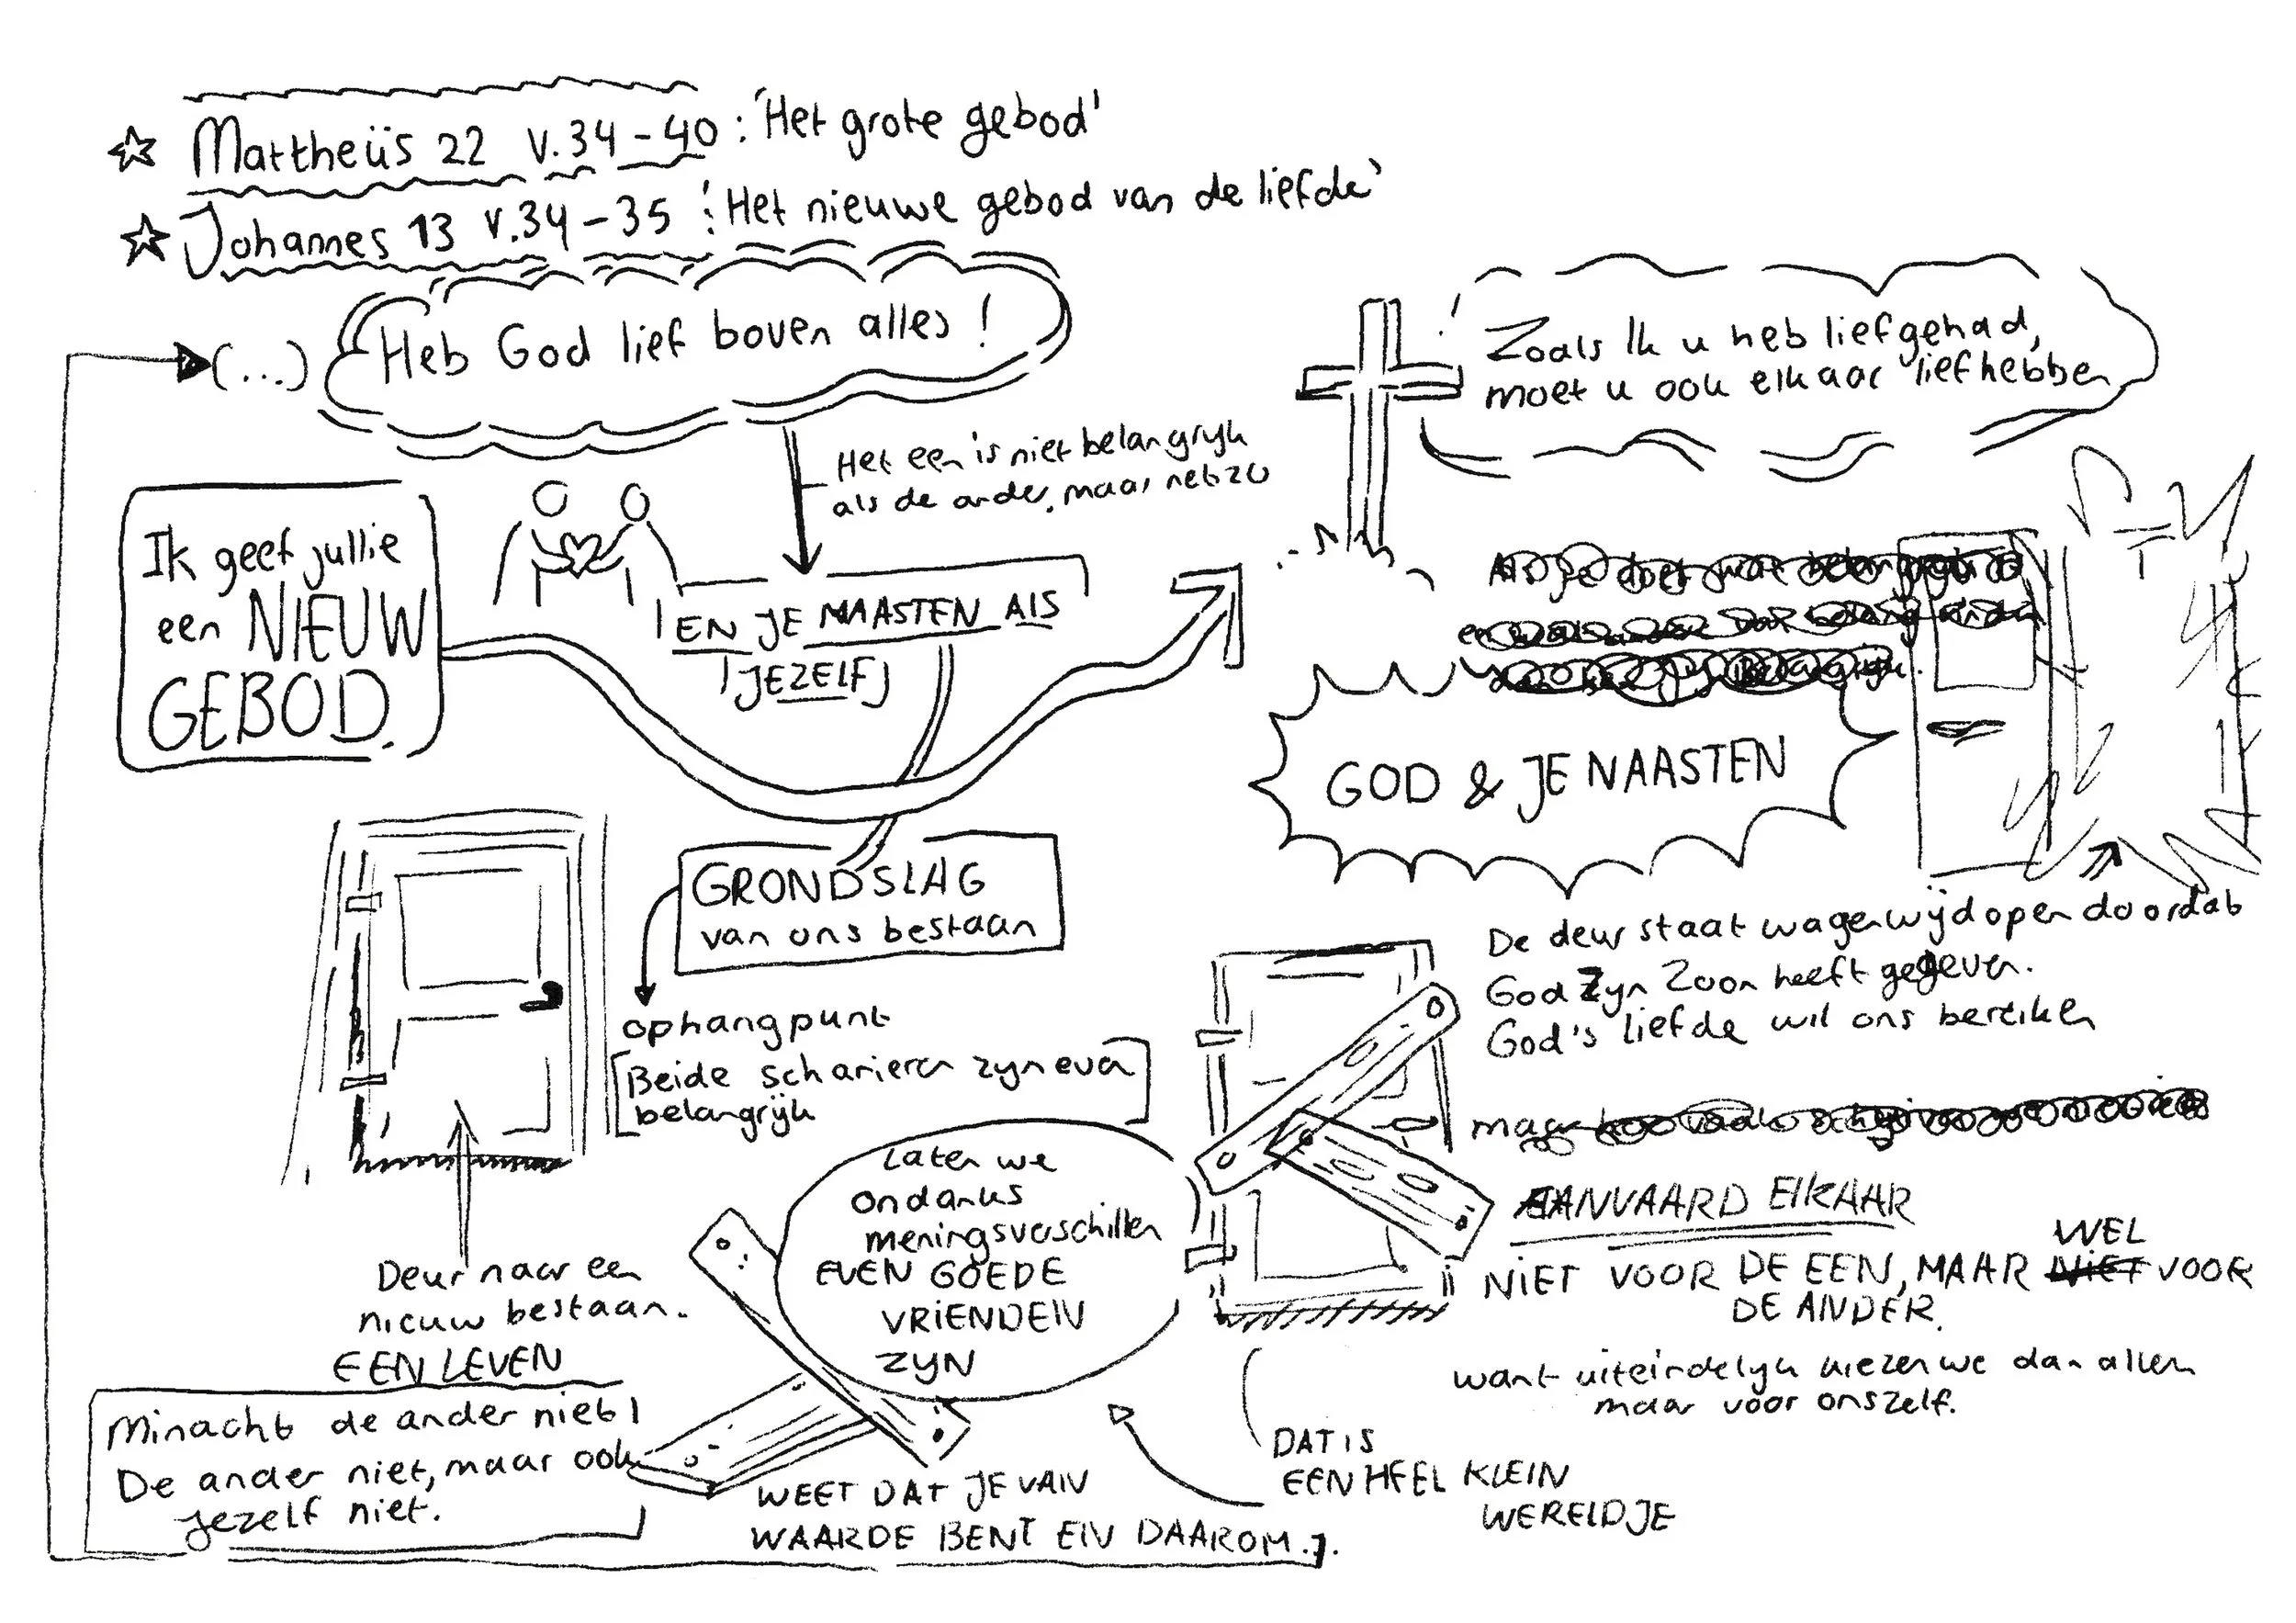 Mattheüs 22 v.34-40: 'Het grote gebod'
Johannes 13 v.34-35: 'Het nieuwe gebod van de liefde'
(...) Heb God lief boven alles!
Het een is niet belangrijk
als de ander, maar net zo
Zoals Ik u heb liefgehad,
moet u ook elkaar liefhebben
Ik geef jullie
een NIEUW
GEBOD.
EN JE NAASTEN ALS
JEZELF
GOD & JE NAASTEN
GRONDSLAG
van ons bestaan
ophangpunt
Beide scharieren zijn even
belangrijk
De deur staat wagenwijd open doordat
God Zijn Zoon heeft gegeven.
God's liefde wil ons bereiken
maar
AANVAARD ELKAAR
NIET VOOR DE EEN, MAAR NIET WEL VOOR
DE ANDER.
want uiteindelijk kiezen we dan allen
maar voor onszelf.
DAT IS
EEN HEEL KLEIN
WERELDJE
Laten we
ondanks
meningsverschillen
EVEN GOEDE
VRIENDEN
ZIJN
Deur naar een
nieuw bestaan.
EEN LEVEN
Minacht de ander niet!
De ander niet, maar ook
jezelf niet.
WEET DAT JE VAN
WAARDE BENT EN DAAROM..